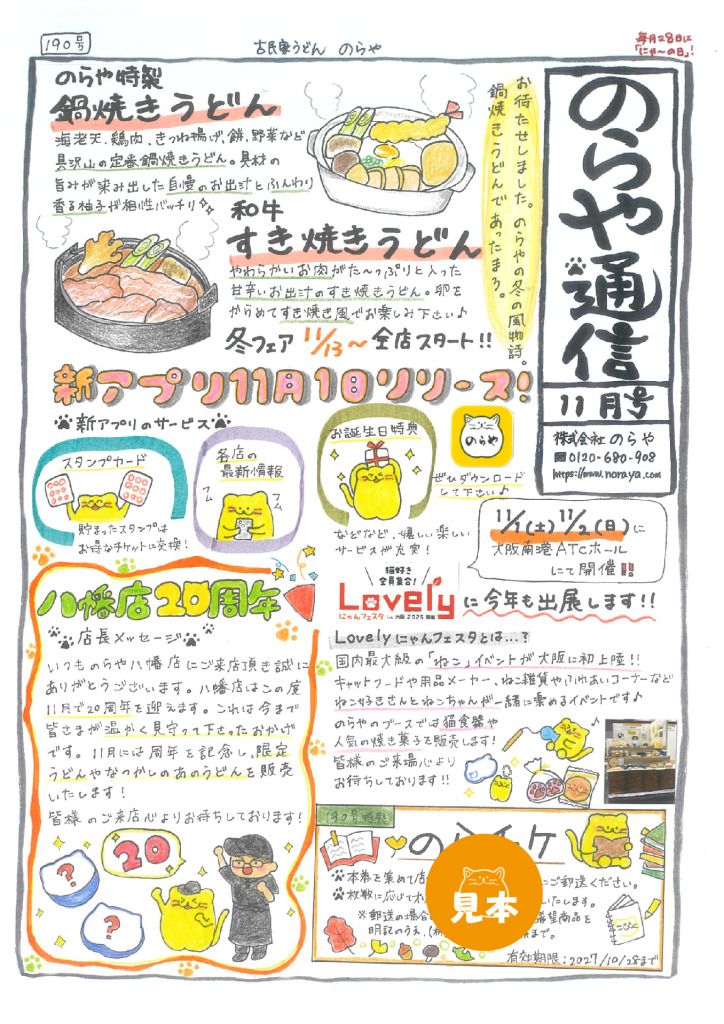 190号
古民家うどん のらや
毎月28日に
「にゃ〜の日」!
のらや通信
11月号
株式会社 のらや
0120-680-908
https://www.noraya.com
お待たせしました。のらやの冬の風物詩。
鍋焼きうどんであったまろ。
のらや特製
鍋焼きうどん
海老天、鶏肉、きつね揚げ、餅、野菜など
具沢山の定番鍋焼きうどん。具材の
旨みが染み出した自慢のお出汁とふんわり
香る柚子が相性バッチリ
和牛
すき焼きうどん
やわらかいお肉がた〜っぷりと入った
甘辛いお出汁のすき焼きうどん。卵を
からめてすき焼き風でお楽しみ下さい♪
冬フェア 11/13〜 全店スタート!!
新アプリ11月1日リリース!
新アプリのサービス
スタンプカード
貯まったスタンプは
お得なチケットに交換!
各店の
最新情報
フム
フム
お誕生日特典
などなど、嬉しい楽しい
サービスが充実!
のらや
ぜひダウンロード
して下さい♪
11/1(土)11/2(日)に
大阪南港ATCホール
にて開催!!
猫好き
全員集合!
Lovely
にゃんフェスタ in 大阪 2025 開催
に今年も出展します!!
Lovelyにゃんフェスタとは...?
国内最大級の「ねこ」イベントが大阪に初上陸!!
キャットフードや用品メーカー、ねこ雑貨やふれあいコーナーなど
ねこ好きさんとねこちゃんが一緒に楽めるイベントです♪
のらやのブースでは猫食器や
人気の焼き菓子を販売します!
皆様のご来場心より
お待ちしております!!
八幡店20周年
店長メッセージ
いつものらや八幡店にご来店頂き誠に
ありがとうございます。八幡店はこの度
11月で20周年を迎えます。これは今まで
皆さまが温かく見守って下さったおかげ
です。11月には周年を記念し、限定
うどんやなつかしのあのうどんを販売
いたします!
皆様のご来店心よりお待ちしております!
20
?
?
190号特製
のらチケ
本券を集めて店
にご郵送ください。
枚数に応じてオ
いたします。
※郵送の場合
希望商品を
明記のうえ、(株
まで。
有効期限:2027/10/28まで
見本